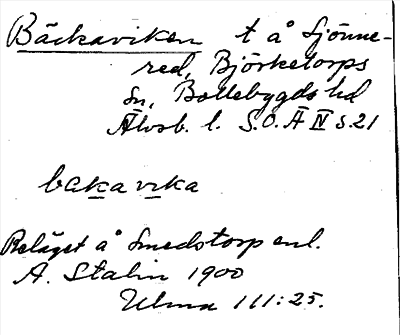 Bäckaviken t å Sjönne-
red, Björketorps
sn, Bollebygds hd
Älvsb. l. S.O.Ä IV s.21
bakavika
Beläget å Smedstorp enl.
A. Stalin 1900
111:25.